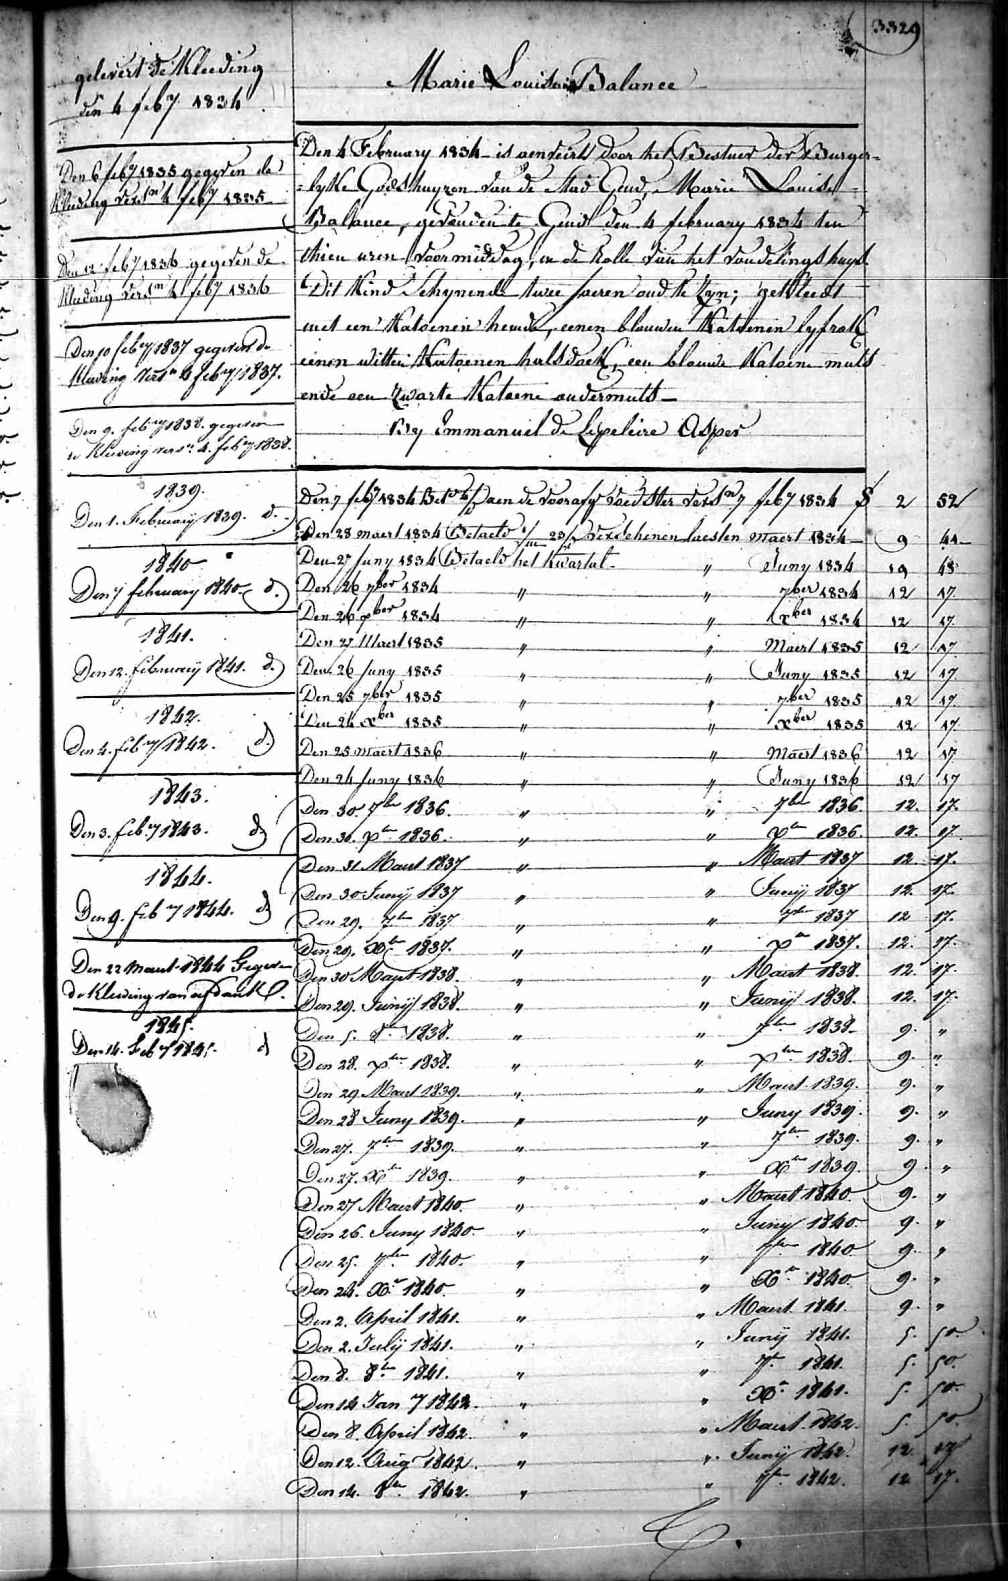 3329
gelevert de Kleeding
den 4 feb.y 1834
Den 6 feb.y 1835 gegeven de
Kleeding versn 4 feb.y 1835
Den 12 feb.y 1836 gegeven de
Kleeding versn 4 feb.y 1836
Den 10 feb.y 1837 gegeven de
Kleeding versn 4 feb.y 1837.
Den 9. feb.y 1838. gegeven
de Kleeding versn. 4. feb.y 1838.
1839.
Den 1. February 1839. d.
1840
Den 7 february 1840 d.
1841.
Den 12. february 1841. d.
1842.
Den 4. feb.y 1842. d.
1843.
Den 3. feb.y 1843. d
1844.
Den 9. feb.y 1844. d
Den 22 Maert 1844 Gegeven
de Kleeding van
1845.
Den 14. Feb.y 1845. d
Marie Louise Balance
Den 4 February 1834 is aenveirt door het Bestuer der Burger=
=lyke Godshuyzen van de Stad Gend, Marie Louise
Balance, gevonden te Gend den 4 february 1834 ten
thien uren voormiddag, in de Rolle van het vondelingshuys.
Dit Kind schynende twee jaeren oud te zyn; gekleedt
met een Katoenen hemde, eenen blauwen Katoenen lyfrok
eenen witten Katoenen halsdoek, een blauwe Katoene muts
ende een zwarte Katoene ondermuts
By Emmanuel de Lepeleire Asper
Den 7 feb.y 1834 Bet aen de voorafg voedster versn 7 feb.y 1834 2 52
Den 28 maert 1834 Betaeld verschenen laesten Maert 1834 9 41
Den 27 Juny 1834 Betaeld het Kwartal " Juny 1834 19 48
Den 26 7ber 1834 " " 7ber 1834 12 17
Den 26 xber 1834 " " xber 1834 12 17
Den 27 Maert 1835 " " Maert 1835 12 17
Den 26 Juny 1835 " " Juny 1835 12 17
Den 25 7ber 1835 " " 7ber 1835 12 17
Den 24 xber 1835 " " xber 1835 12 17
Den 25 maert 1836 " " Maert 1836 12 17
Den 24 Juny 1836 " " Juny 1836 12 17
Den 30. 7ber 1836. " " 7ber 1836 12. 17.
Den 30. Xber 1836. " " Xber 1836 12. 17.
Den 31. Maert 1837 " " Maert 1837 12. 17.
Den 30 Junÿ 1837 " " Junÿ 1837 12. 17.
Den 29. 7ber 1837. " " 7ber 1837 12 17.
Den 29. Xber 1837. " " Xber 1837. 12. 17.
Den 30 Maert 1838. " " Maert 1838. 12. 17.
Den 29. Junÿ 1838. " " Junÿ 1838. 12. 17.
Den 5. 8ber 1838. " " 7ber 1838. 9. "
Den 28. Xber 1838. " " Xber 1838. 9. "
Den 29 Maert 1839. " " Maert 1839. 9. "
Den 28 Juny 1839. " " Juny 1839. 9. "
Den 27. 7ber 1839. " " 7ber 1839. 9. "
Den 27. Xber 1839. " " Xber 1839. 9. "
Den 27 Maert 1840. " " Maert 1840 9. "
Den 26. Juny 1840. " " Juny 1840. 9. "
Den 25. 7ber 1840. " " 7ber 1840 9. "
Den 24. Xber 1840. " " Xber 1840. 9. "
Den 2. April 1841. " " Maert. 1841. 9. "
Den 2. Julÿ 1841. " " Junÿ 1841. 5. 50.
Den 8. 8ber 1841. " " 7ber 1841. 5. 50.
Den 14 Jan.y 1842. " " Xber 1841. 5. 50.
Den 8. April 1842. " " Maert 1842. 5. 50
Den 12. Aug 1842. " " Junÿ 1842. 12 17
Den 14. 8ber 1842. " " 7ber 1842. 12 17.